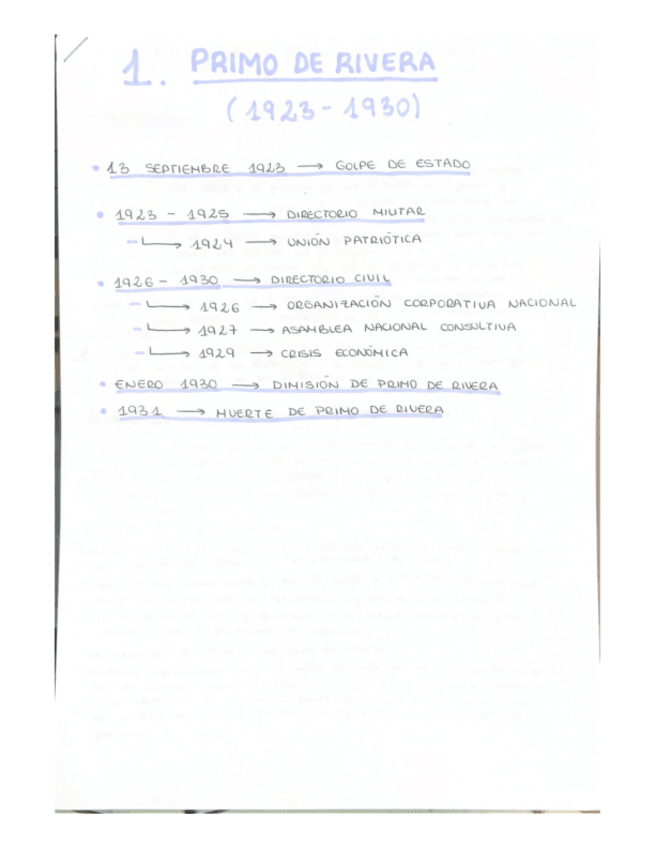 1. PRIMO DE RIVERA
(1923 - 1930)
• 13 SEPTIEMBRE 1923 → GOLPE DE ESTADO
• 1923 - 1925 → DIRECTORIO MILITAR
- ↳ 1924 → UNIÓN PATRIÓTICA
• 1926 - 1930 → DIRECTORIO CIVIL
- ↳ 1926 → ORGANIZACIÓN CORPORATIVA NACIONAL
- ↳ 1927 → ASAMBLEA NACIONAL CONSULTIVA
- ↳ 1929 → CRISIS ECONÓMICA
• ENERO 1930 → DIMISIÓN DE PRIMO DE RIVERA
• 1931 → MUERTE DE PRIMO DE RIVERA.